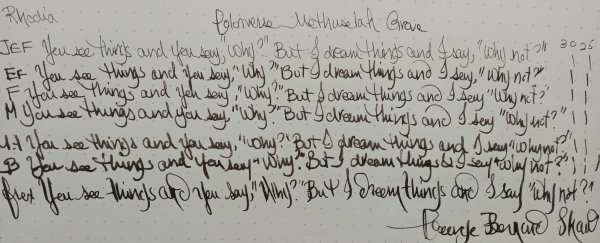 Rhodia Colorverse Methuselah Grove
JEF You see things and you say, "Why?" But I dream things and I say, "Why not?" 30 25
EF You see things and you say, "Why?" But I dream things and I say, "Why not?" | |
F You see things and yeh say "Why?" But I dream things and I sey "Why not?" | |
M You see things and you say, "Why?" But I dream things and I sey "Why not?" | |
1.1 You see things and you say, "Why? But I dream things and I say "Why not?" | |
B You see things and you say "Why?" But I dream things & I say "Why not?" | |
flex You see things and you say, "Why?" But I dream things and I say "Why not?
George Bernard Shaw